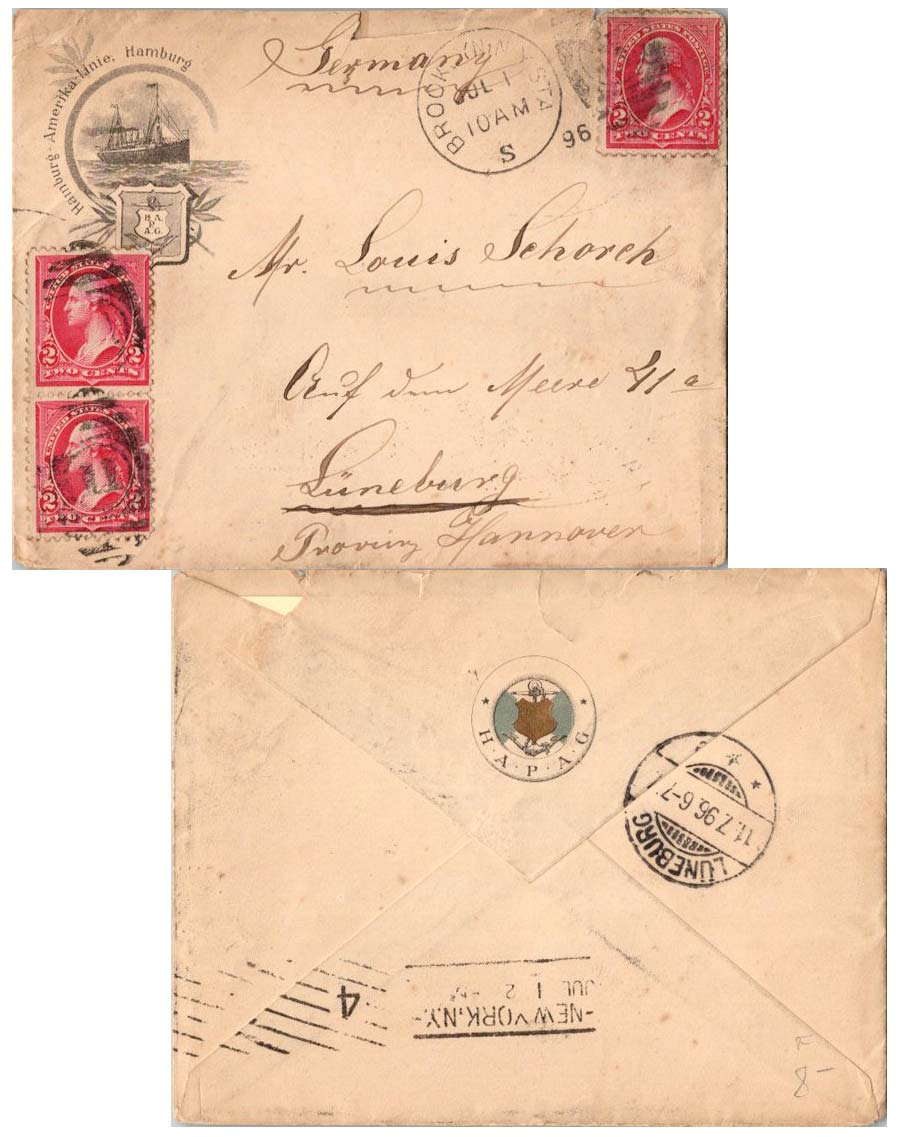 Hamburg-Amerika-Linie, Hamburg
H. A.
P.
A. G.
Germany
BROOKLYN
JUL 1
10 AM
S
96
UNITED STATES POSTAGE
2 2
TWO CENTS
Mr. Louis Schorch
Auf dem Meere 41 a
Lüneburg
Provinz Hannover
2 2
TWO CENTS
UNITED STATES
2 2
TWO CENTS
H·A·P·A·G
LÜNEBURG
11.7.96.6-7
-NEW YORK, N.Y.-
JUL 1 2
4
F
8-